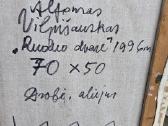 Alfonsas
Vilpišauskas
„Ruduo dvare" 1996 m
70 x 50
Drobė, aliejus